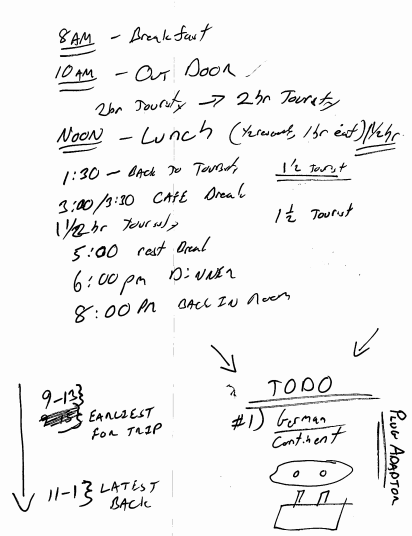 8AM - Breakfast
10AM - OUT DOOR
2hr Touristy → 2hr Touristy
NOON - Lunch (½ransit, 1hr eat) 1½hr
1:30 - BACK TO Touristy 1½ Tourist
3:00/3:30 CAFE Break
1½hr Touristy 1½ Tourist
5:00 rest Break
6:00pm DINNER
8:00PM BACK IN ROOM
TODO
#1) German
Continent
PLUG ADAPTOR
9-13}
EARLIEST
FOR TRIP
11-1} LATEST
BACK